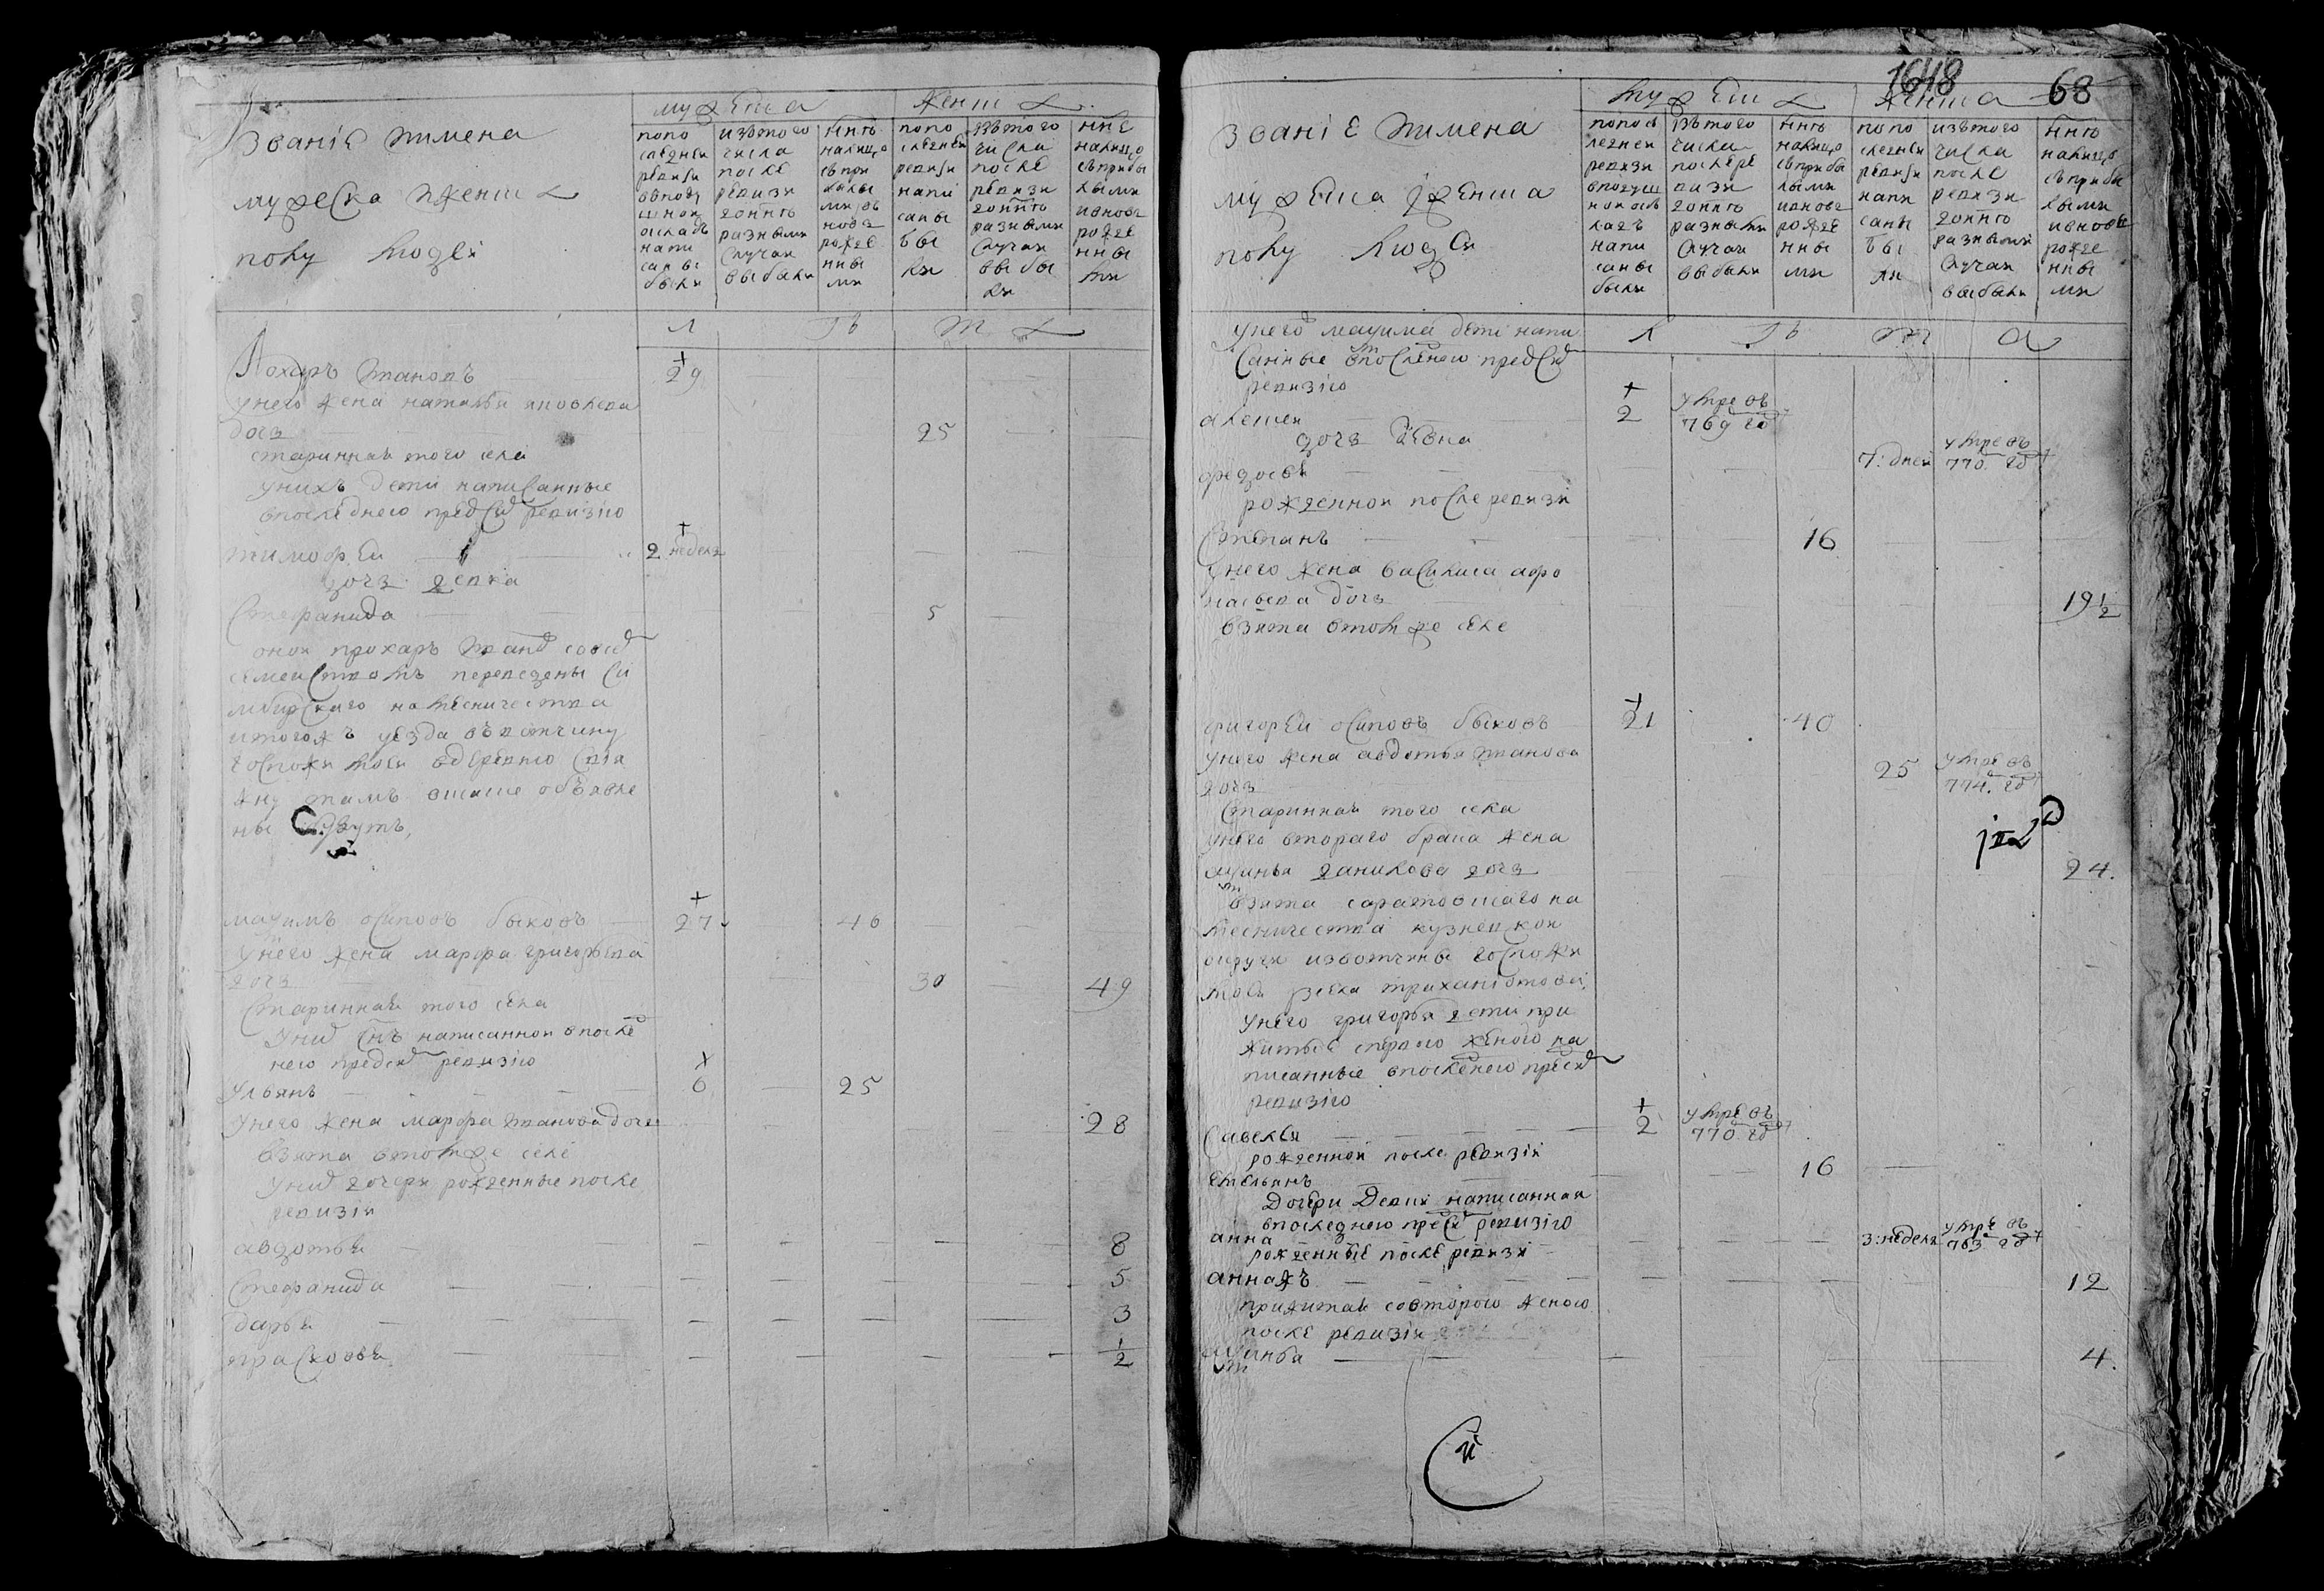 званіе иимена
мужеска иженска
полу людей
мужеска
женска
попо
следнеи
ревизи
вподу
шнои
окладъ
напи
саны
были
изътого
числа
после
ревизи
доннѣ
разными
случаи
выбыли
ннѣ
налицо
съпри
былы
ми ивъ
новѣ
рожде
нны
ми
попо
следнеи
ревизи
напи
саны
бы
ли
изътого
числа
после
ревизи
доннѣ
разными
случаи
выбы
ли
ннѣ
налицо
съприбы
лыми
ивновѣ
рожде
нны
ми
л ѣ т а
Прохоръ ивановъ 29
унего жена наталья яковлева
дочь 25
стариннаѧ того села
унихъ дети написанные
впоследнею пред сею ревизію
тимофеи 2 недель
дочь девка
Стефанида 5
онои прохоръ иванов совсем
семеиствомъ переведены си
мбирского наместничества
итогожъ уезда въвотчину
госпожи моеи вдеревню
тамъ всказке объявле
ны будутъ,
маѯимъ осиповъ быковъ 27 46
унего жена марфа григорьева
дочь 30 49
Стариннаѧ того села
Уних снъ написаннои впосле
нею предсею ревизію
Ульянъ 6 25
унего жена марфа иванова дочь 28
взята втомже селе
Уних дочери рожденные после
ревизіи
авдотьѧ 8
Стефанида 5
дарьѧ 3
прасковьѧ 1/2
1648
68
званіе иимена
мужеска іженска
полу людеи
мужеска
женска
попосъ
леднеи
ревизи
вподуш
номокъ
ладъ
напи
саны
были
изътого
числа
послере
визи
доннѣ
разными
случаи
выбыли
ннѣ
налицо
съприбы
лыми
ивновѣ
рожде
нны
ми
попо
следнеи
ревизи
напи
саны
бы
ли
изътого
числа
после
ревизи
доннѣ
разными
случаи
выбыли
ннѣ
налицо
съприбы
лыми
ивновѣ
рожде
нны
ми
л ѣ т а
унего маѯима дети напи
санные впосленею предсею
ревизію
алеѯеи 2 умре въ 769 год
дочь девка
федосьѧ 7: дней умре въ 770 год
рожденнои после ревизи
Степанъ 16
унего жена василиса афо
насьева дочь 19 1/2
взята втомже селе
григореи осиповъ быковъ 21 40
унего жена авдотья иванова
дочь 25 умре въ 774. год
Стариннаѧ того села
унего втораго брака жена
аѯинья данилова дочь 24.
взята саратовскаго на
месничества кузнецкои
округи извотчины госпожи
моеи зсела труханіотовои,
унего григорья дети при
житые спервою женою на
писанные впосленею предсею
ревизію
Савелеи 2 умре въ 770 год
рожденнои после ревизіи
Емельянъ 16
Дочери Девки написаннаѧ
впоследнею пред сею ревизію
анна 3: недели умре въ 763 год
рожденные после ревизи
аннажъ 12
прижитаѧ совторою женою
после ревизіи
аѯинья 4.